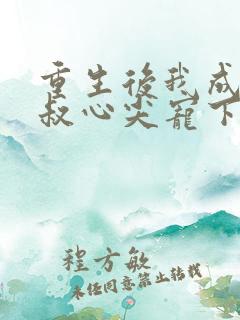 重生後我成
叔心尖寵下
程方敏
未经同意禁止转载